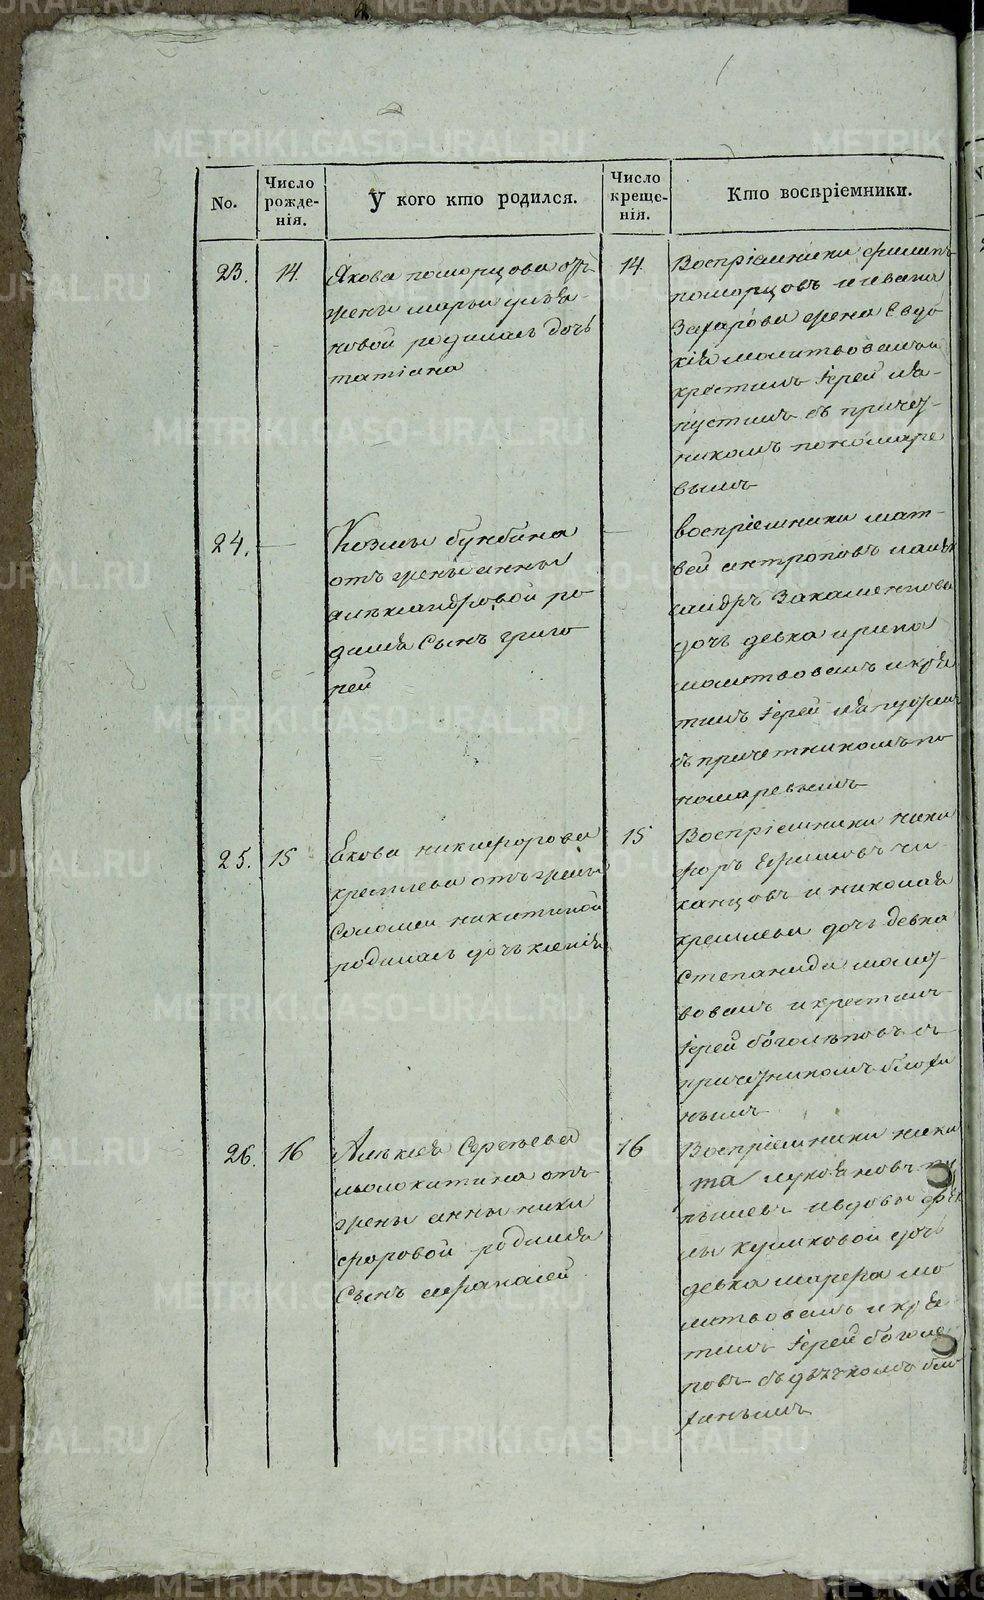 METRIKI.GASO-URAL.RU
No.
Число рожде-нія.
У кого кто родился.
Число креще-нія.
Кто воспріемники.
23.
14
Якова поморцова отъ
жены марьи улья-
новой родилась дочь
татіана
14
Воспріемники филипъ
поморцовъ иивана
Захарова жена Евдо
кія молитвовалъ и
крестилъ Іерей Ка-
пустинъ съ причет-
никомъ пономаре
вымъ
24.
—
Козмы бунбина
отъ жены анны
александровой ро-
дился Сынъ григо
рей
—
воспріемники мат-
вей антроповъ
дочь девка ирина
молитвовалъ и крес
тилъ Іерей Капустинъ
съ причетникомъ по
номаревымъ
25.
15
Якова никифорова
кремлева отъ жены
Соломеи никитиной
родилась дочь ксенія
15
Воспріемники ники
форъ Ефимовъ чи-
канцовъ и николая
кремлева дочь девка
Степанида молит-
вовалъ и крестилъ
Іерей боголеповъ съ
причетникомъ блохи
нымъ
26.
16
Алексея Сергеева
молокитина отъ
жены анны ники
форовой родился
Сынъ афанасей
16
Воспріемники ники
та лукояновъ
пышевъ ивдовы
куликовой дочь
девка марфа мо
литвовалъ и крес
тилъ Іерей боголе
повъ съ дьячкомъ бло
хинымъ